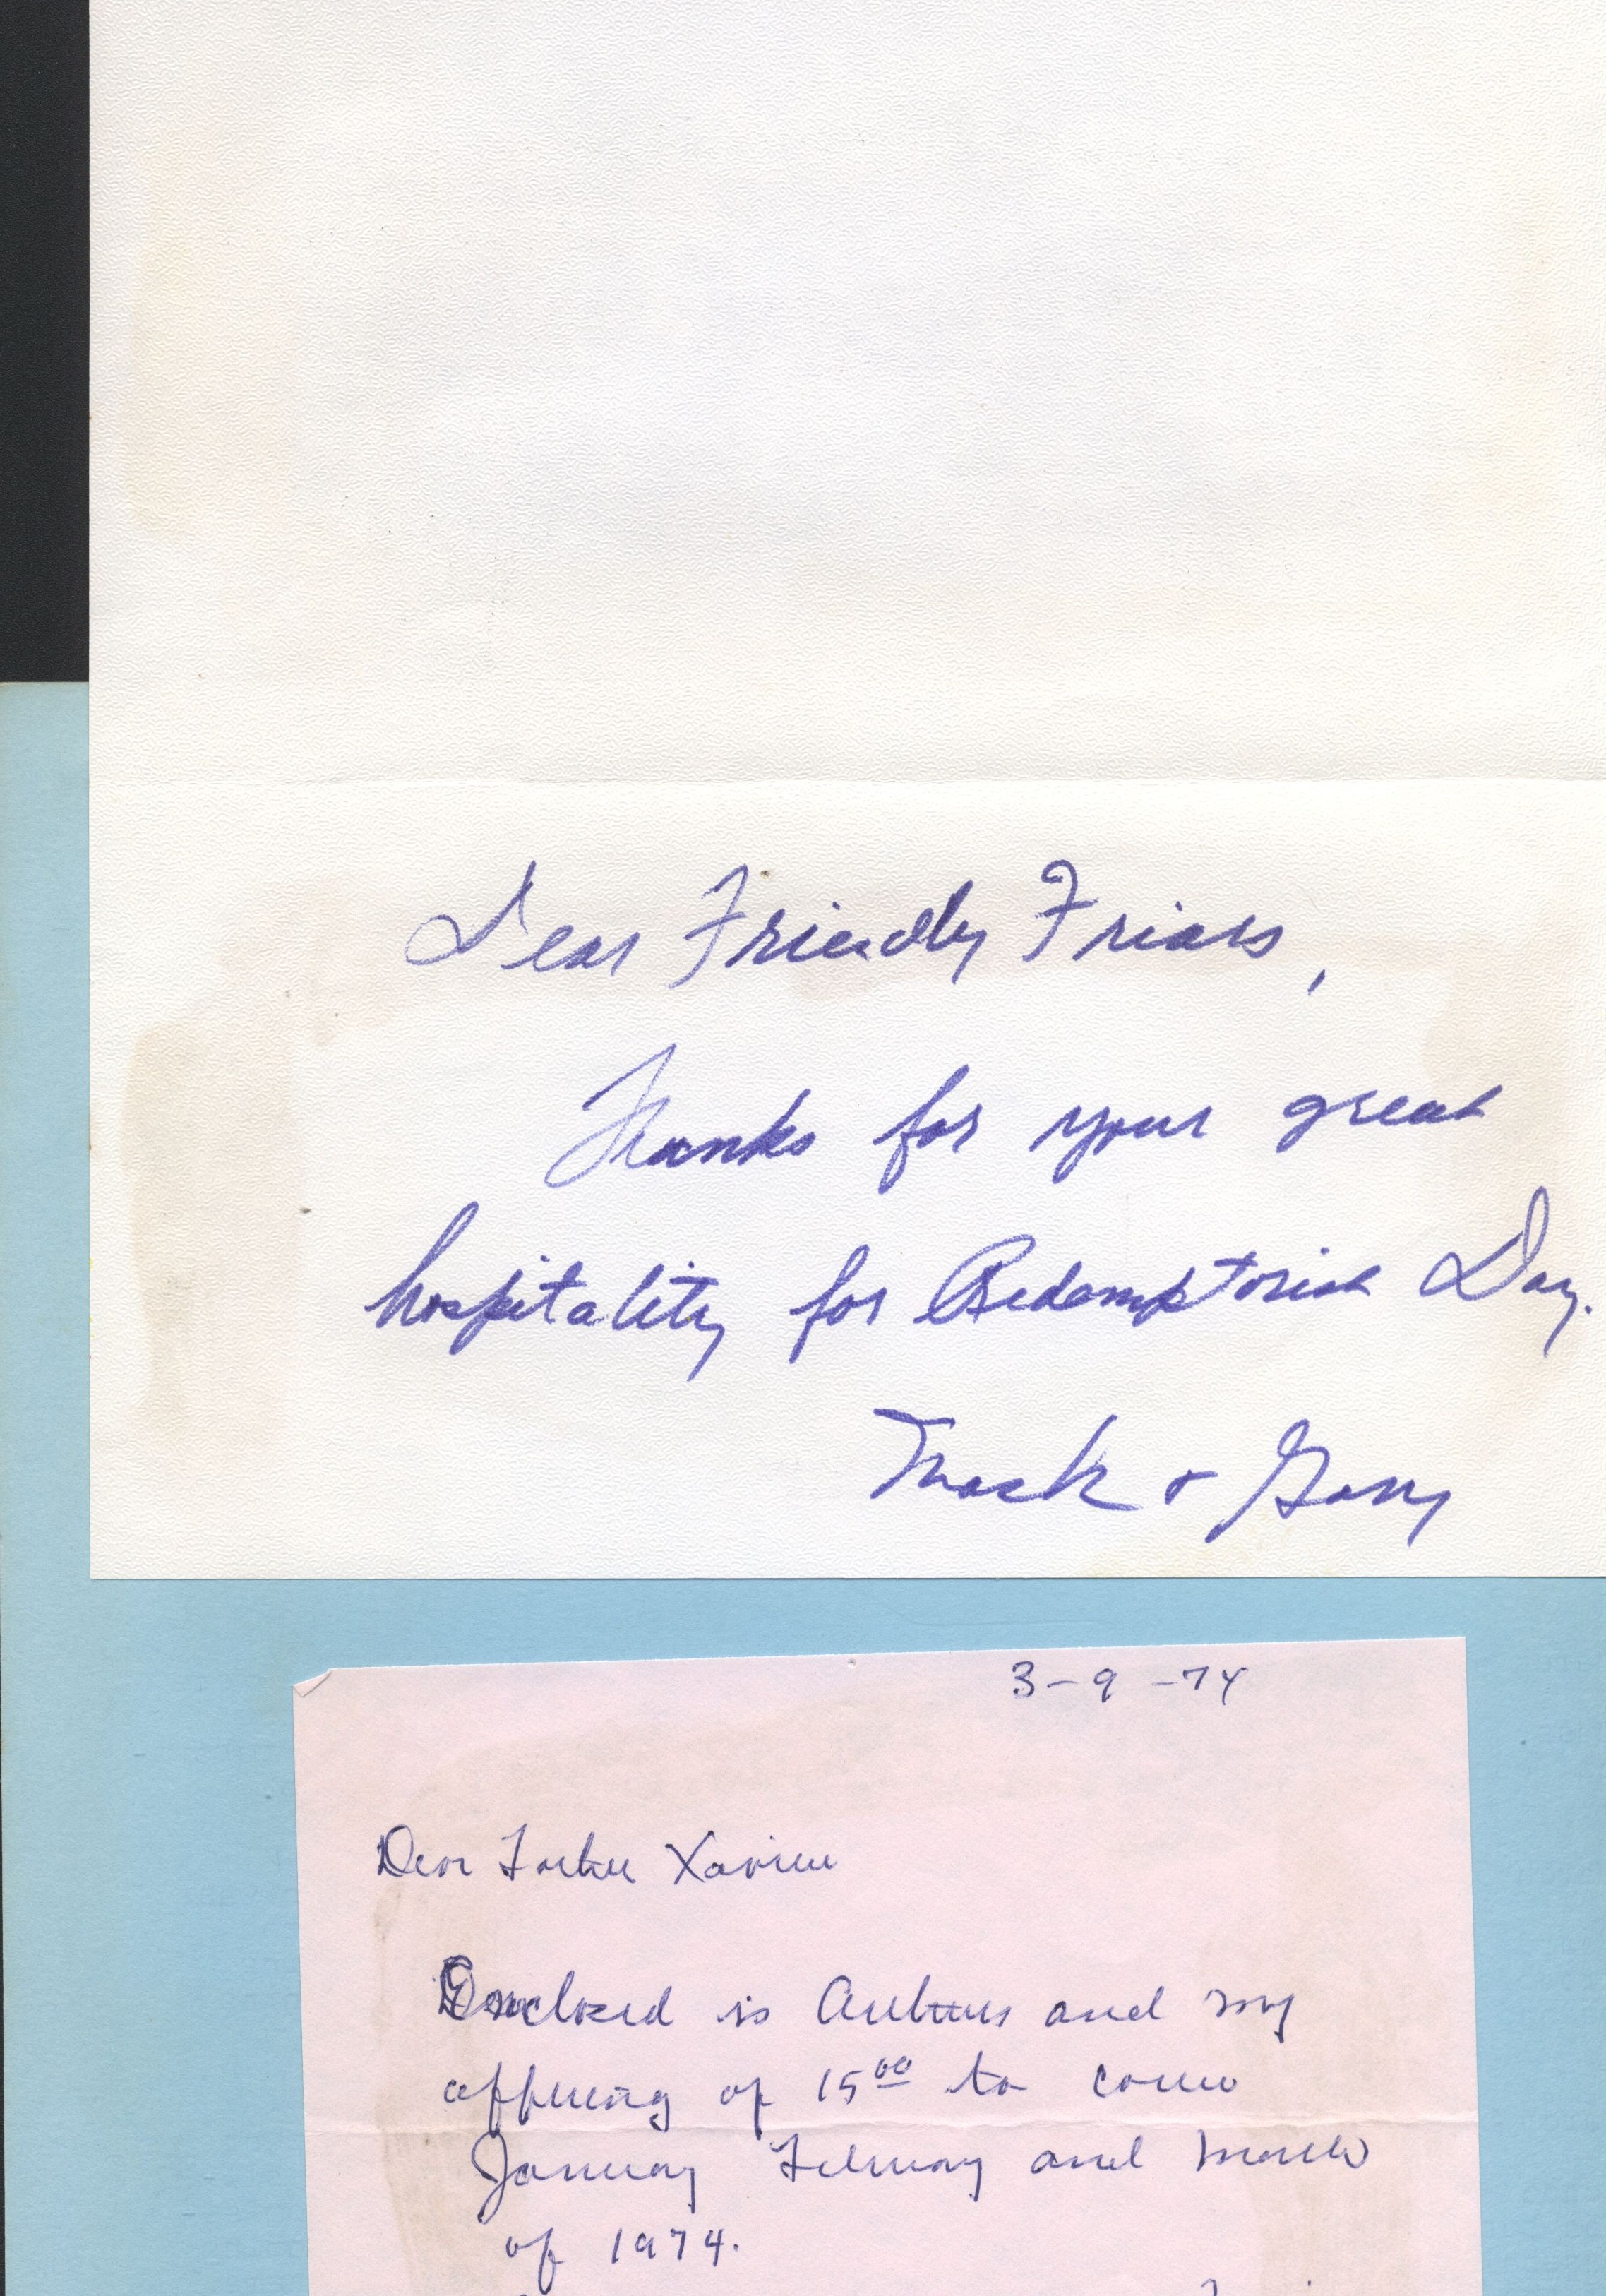 Dear Friendly Friars,
Thanks for your great
hospitality for Redemptorist Day.
Mack & Gary
3-9-74
Dear Father Xavier
Enclosed is Arthurs and my
offering of 1500 to cover
January February and March
of 1974.